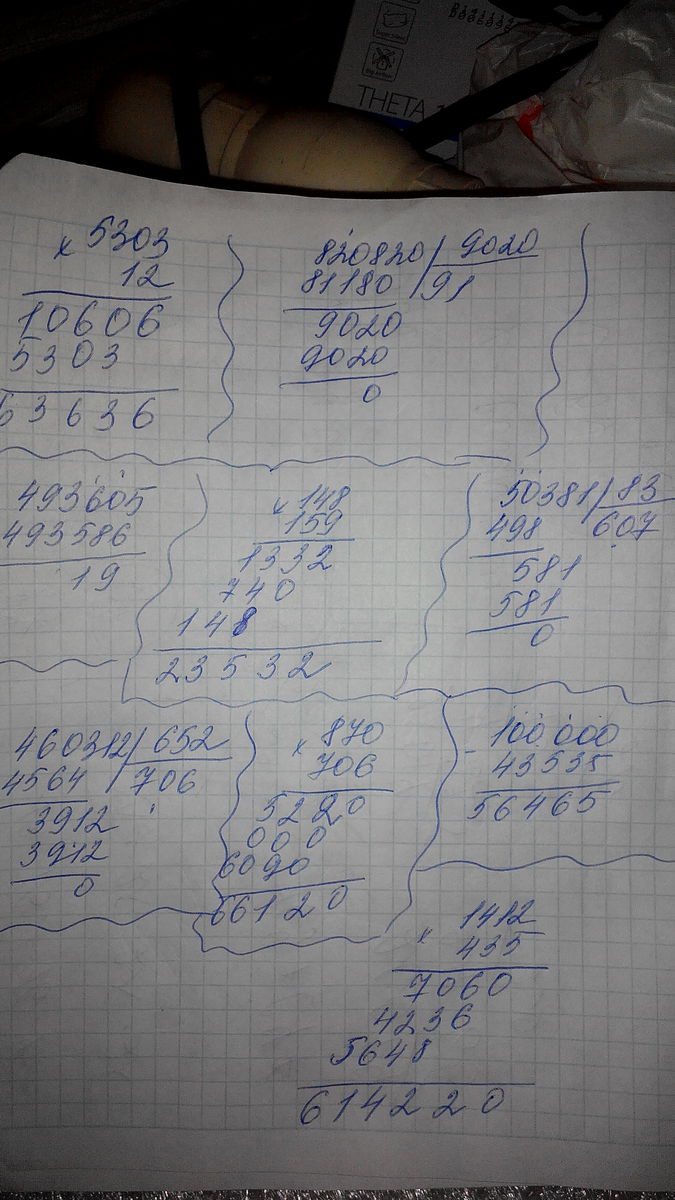 THETA
× 5303
12
10606
5303
63636
820820 / 9020
81180 / 91
9020
9020
0
493605
493586
19
× 148
159
1332
740
148
23532
50381 / 83
498 607
581
581
0
460312 / 652
4564 / 706
3912
3912
0
× 870
706
5220
000
6090
66120
- 100000
43535
56465
× 1412
435
7060
4236
5648
614220